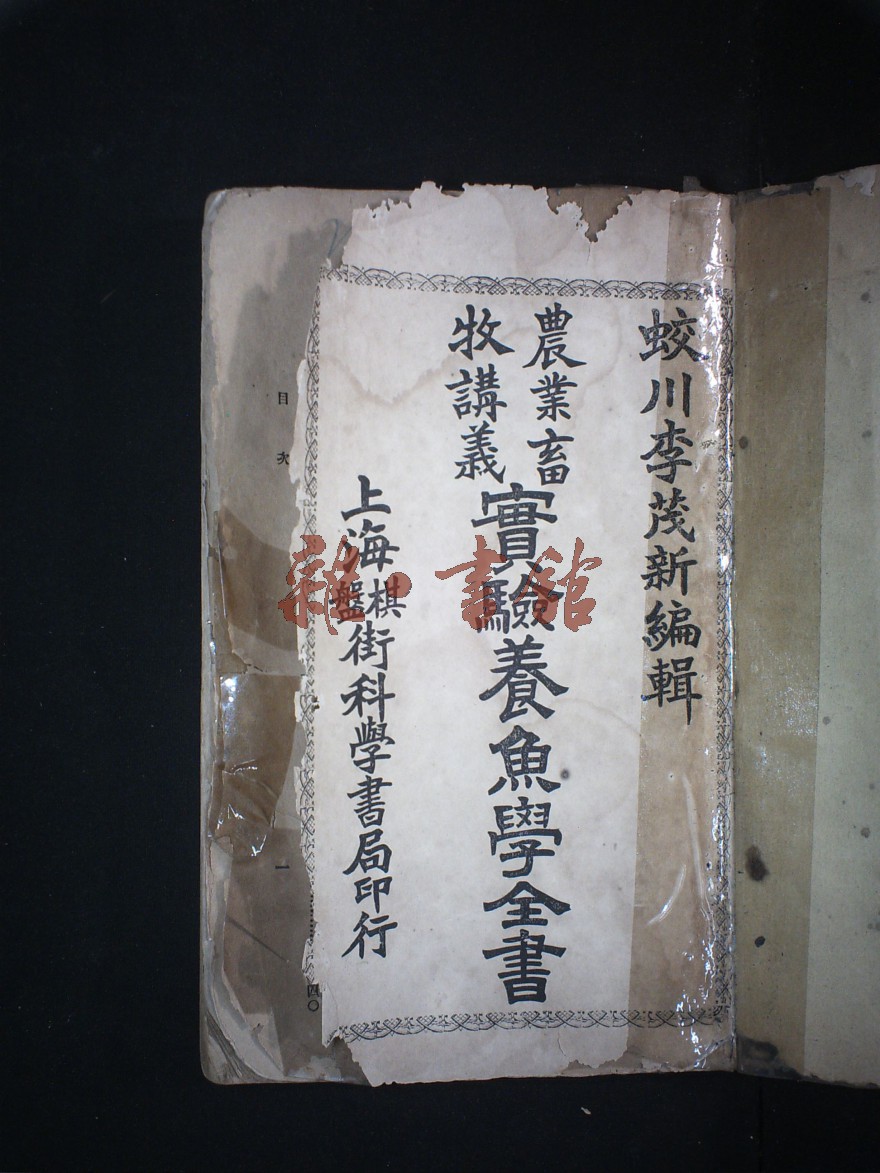 蛟川李茂新編輯
農業畜
牧講義
實驗養魚學全書
上海棋盤街科學書局印行
目次
一
四〇
雜·書館